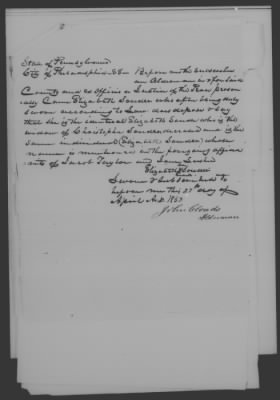 State of Pennsylvania
City of Philadelphia SS Before me the subscriber
an Alderman in & for said
County and ex officio a Justice of the Peace person
ally Came Elizabeth Souder who after being duly
sworn according to Law does depose & say
that she is the identical Elizabeth Souder who is the
widow of Christopher Souder deceased and is the
same individual (Elizabeth Souder) whose
name is mentioned in the foregoing affida
vits of Jacob Taylor and
Elizabeth Souder
Sworn & Subscribed to
before me this 27th day of
April A.D. 1855
John Clouds
Alderman